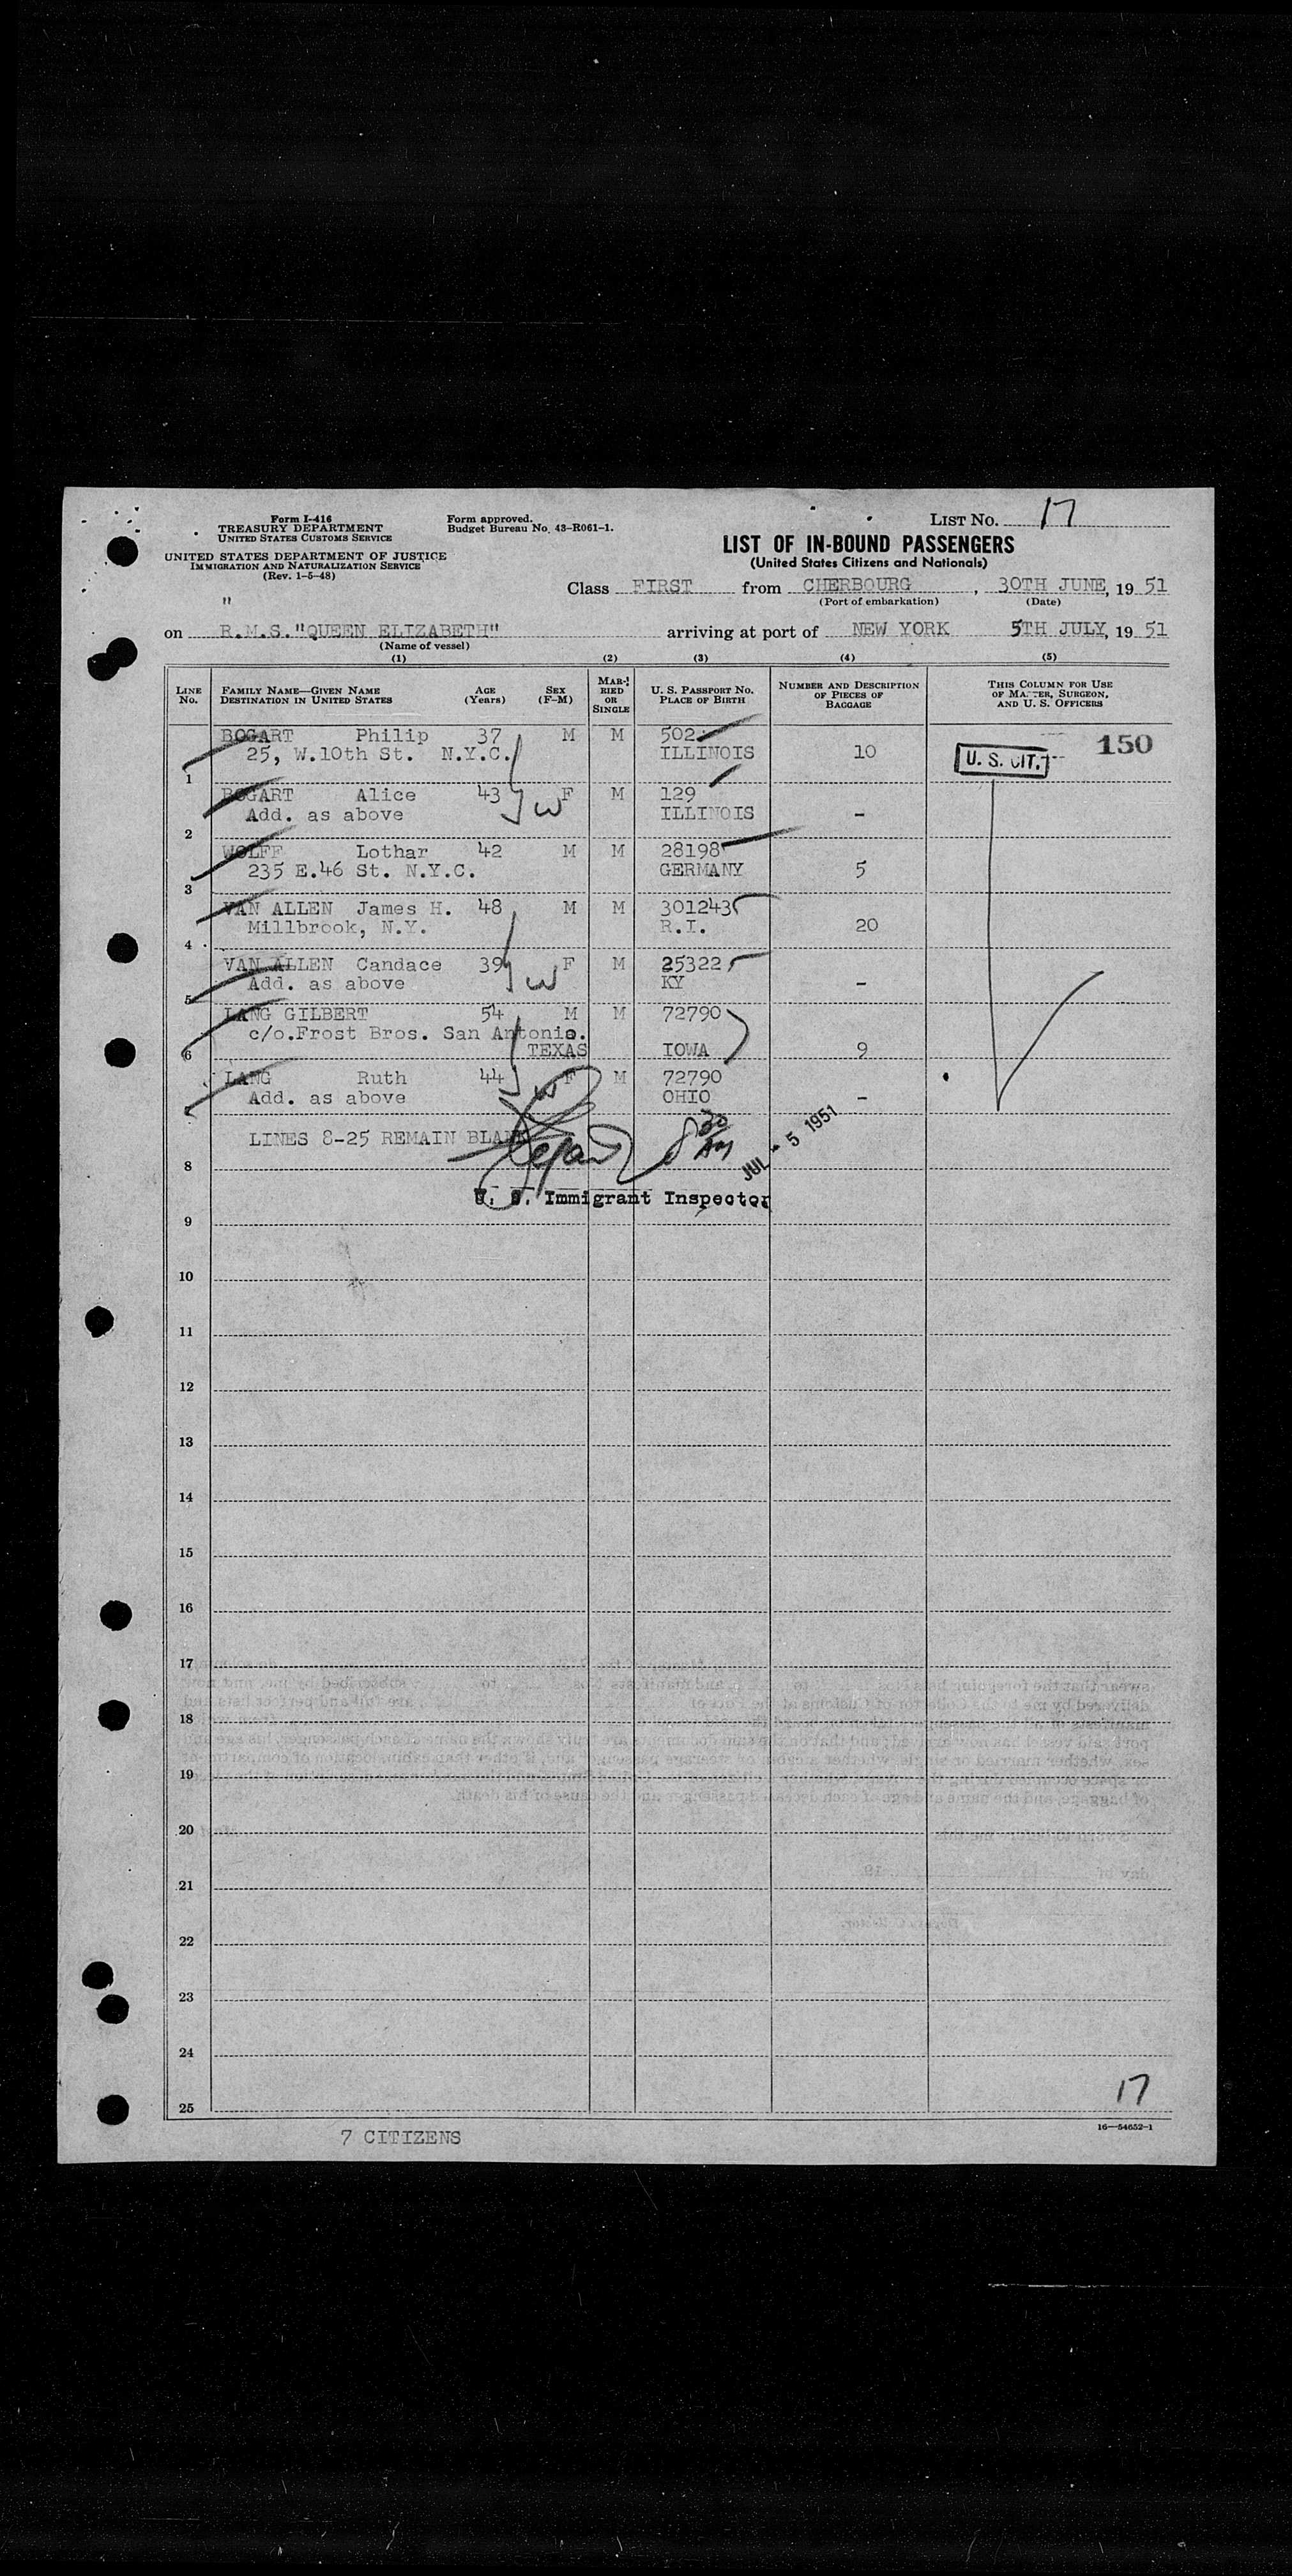 Form I-416
TREASURY DEPARTMENT
UNITED STATES CUSTOMS SERVICE
UNITED STATES DEPARTMENT OF JUSTICE
IMMIGRATION AND NATURALIZATION SERVICE
(Rev. 1-5-48)
Form approved.
Budget Bureau No. 43-R061-1.
LIST NO. 17
LIST OF IN-BOUND PASSENGERS
(United States Citizens and Nationals)
Class FIRST from CHERBOURG, 30TH JUNE, 19 51
(Port of embarkation) (Date)
"
on R.M.S."QUEEN ELIZABETH" arriving at port of NEW YORK 5TH JULY, 19 51
(Name of vessel)
(1) (2) (3) (4) (5)
LINE No. FAMILY NAME—GIVEN NAME DESTINATION IN UNITED STATES AGE (Years) SEX (F-M) MARRIED OR SINGLE U. S. PASSPORT NO. PLACE OF BIRTH NUMBER AND DESCRIPTION OF PIECES OF BAGGAGE THIS COLUMN FOR USE OF MASTER, SURGEON, AND U. S. OFFICERS
BOGART Philip 37 M M 502 150
25, W.10th St. N.Y.C. ILLINOIS 10 U. S. CIT.
1
BOGART Alice 43 W F M 129
Add. as above ILLINOIS -
2
WOLFF Lothar 42 M M 28198
235 E.46 St. N.Y.C. GERMANY 5
3
VAN ALLEN James H. 48 M M 301243
Millbrook, N.Y. R.I. 20
4
VAN ALLEN Candace 39 W F M 25322
Add. as above KY -
5
LANG GILBERT 54 M M 72790
c/o.Frost Bros. San Antonio.
TEXAS IOWA 9
6
LANG Ruth 44 W F M 72790
Add. as above OHIO -
7
LINES 8-25 REMAIN BLANK 8 30 AM JUL - 5 1951
8
U. S. Immigrant Inspector
9
10
11
12
13
14
15
16
17
18
19
20
21
22
23
24
17
25
7 CITIZENS
16—54652-1